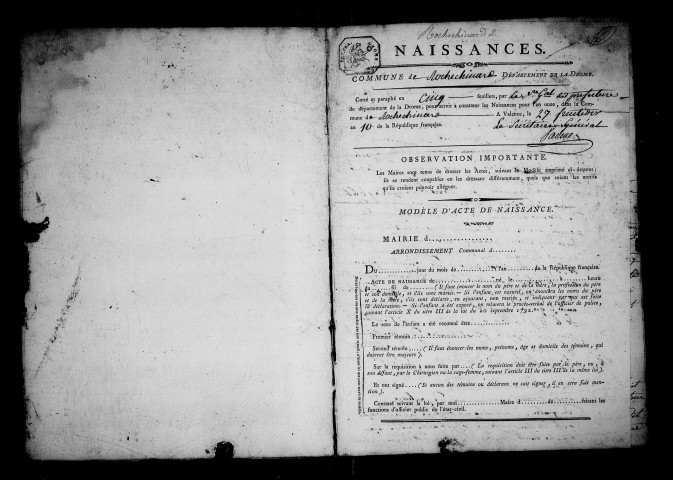 Rochechinard 2.
NAISSANCES.
COMMUNE de Rochechinard DÉPARTEMENT DE LA DROME.
Cotté et paraphé en Cinq feuillets, par le Sre Gal de préfecture
du département de la Drome, pour servir à constater les Naissances pour l'an onze, dans la Com-
mune de Rochechinard A Valence, le 27 fructidor
an 10 de la République française. Le Sécrétaire Général
OBSERVATION IMPORTANTE.
Les Maires sont tenus de dresser les Actes, suivant le Modèle imprimé ci-dessous;
ils se rendent coupables en les dressant différemment, quels que soient les motifs
qu'ils croient pouvoir alléguer.
MODÈLE D'ACTE DE NAISSANCE.
MAIRIE d
ARRONDISSEMENT Communal d
Du jour du mois de l'an de la République française.
ACTE DE NAISSANCE de né le heure
fil de (Il faut énoncer le nom du père et de la mère, la profession du père
et son domicile, et s'ils sont mariés. — Si l'enfant est naturel, on énoncera les noms du père
et de la mère, s'ils sont déclarés, en ajoutant, non mariés, et indiquant par qui est faite
la déclaration. — Si l'enfant a été exposé, on relatera le procès-verbal de l'officier de police,
suivant l'article X du titre III de la loi du 20 septembre 1792.
Le sexe de l'enfant a été reconnu être
Premier témoin
Second témoin (Il faut énoncer les noms, prénoms, âge et domicile des témoins, qui
doivent être majeurs).
Sur la requisition à nous faite par (La requisition doit être faite par le père, ou, à
son défaut, par le Chirurgien ou la sage-femme, suivant l'article III du titre III de la même loi).
Et ont signé (Si aucun des témoins ou déclarans ne sait signer, il en sera fait men-
tion).
Constaté suivant la loi, par moi Maire d faisant les
fonctions d'officier public de l'état-civil.